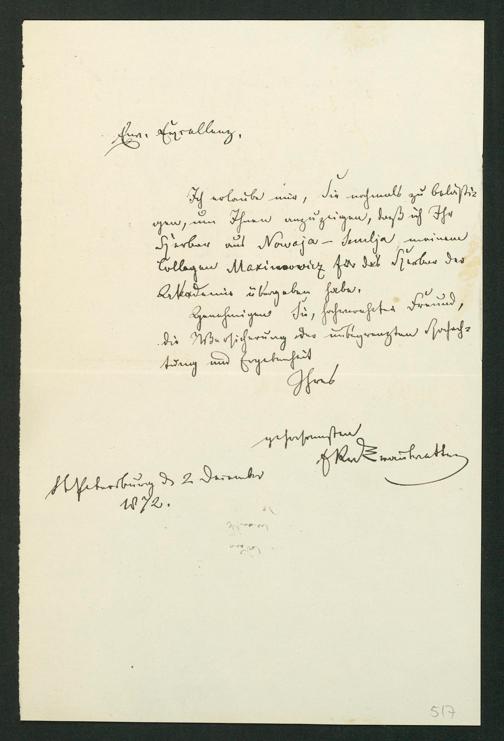 Eur. Excellenz,
Ich erlaube mir, Sie nochmals zu belästi-
gen, um Ihnen anzuzeigen, daß ich Ihr
Herbar aus Nowaja-Semlja meinem
Collegen Maximowicz für das Herbar der
Akademie übergeben habe.
Genehmigen Sie, hochverehrter Freund,
die Versicherung der unbegrenzten Hochach-
tung und Ergebenheit
Ihres
gehorsamsten
St Petersburg d 2 December
1872.
517